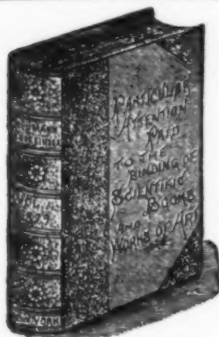 PARTICULAR
ATTENTION
PAID
TO THE
BINDING OF
SCIENTIFIC
BOOKS
AND
WORKS OF ART